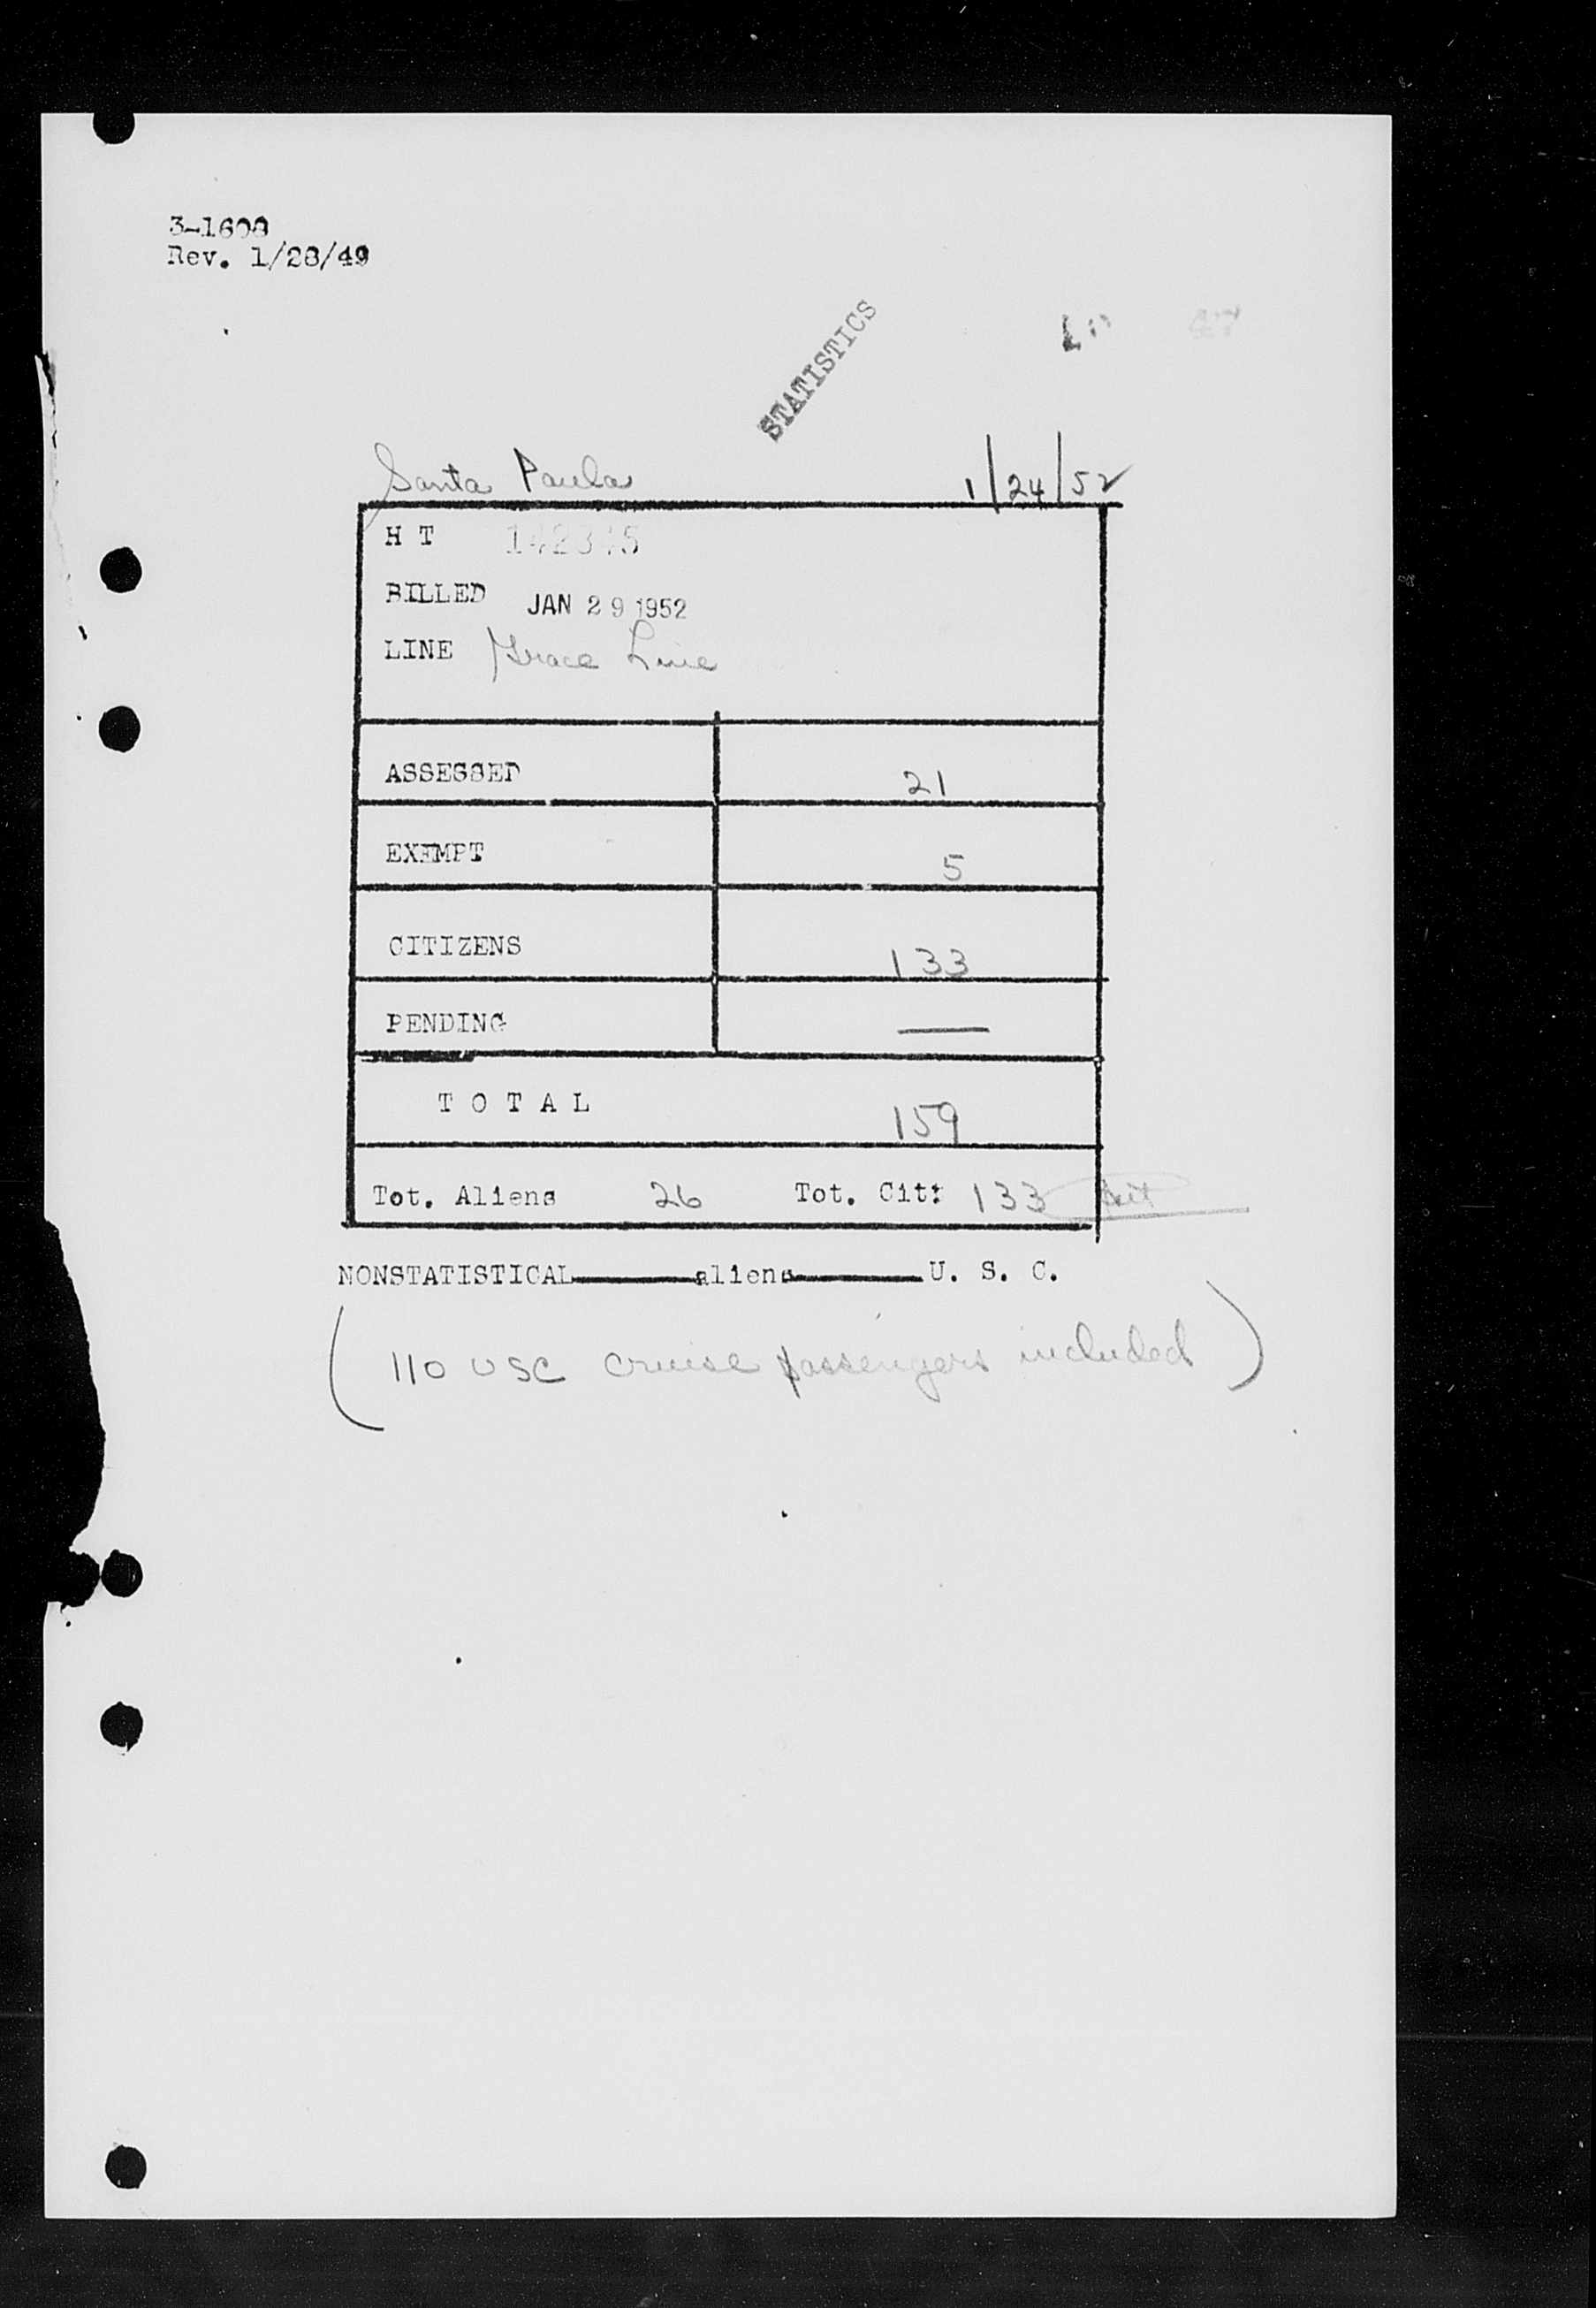 3-1608
Rev. 1/28/49
STATISTICS
Santa Paula 1/24/52
H T
BILLED JAN 29 1952
LINE Grace Line
ASSESSED 21
EXEMPT 5
CITIZENS 133
PENDING —
T O T A L 159
Tot. Aliens 26 Tot. Cit: 133
NONSTATISTICAL aliens U. S. C.
(110 USC cruise passengers included)